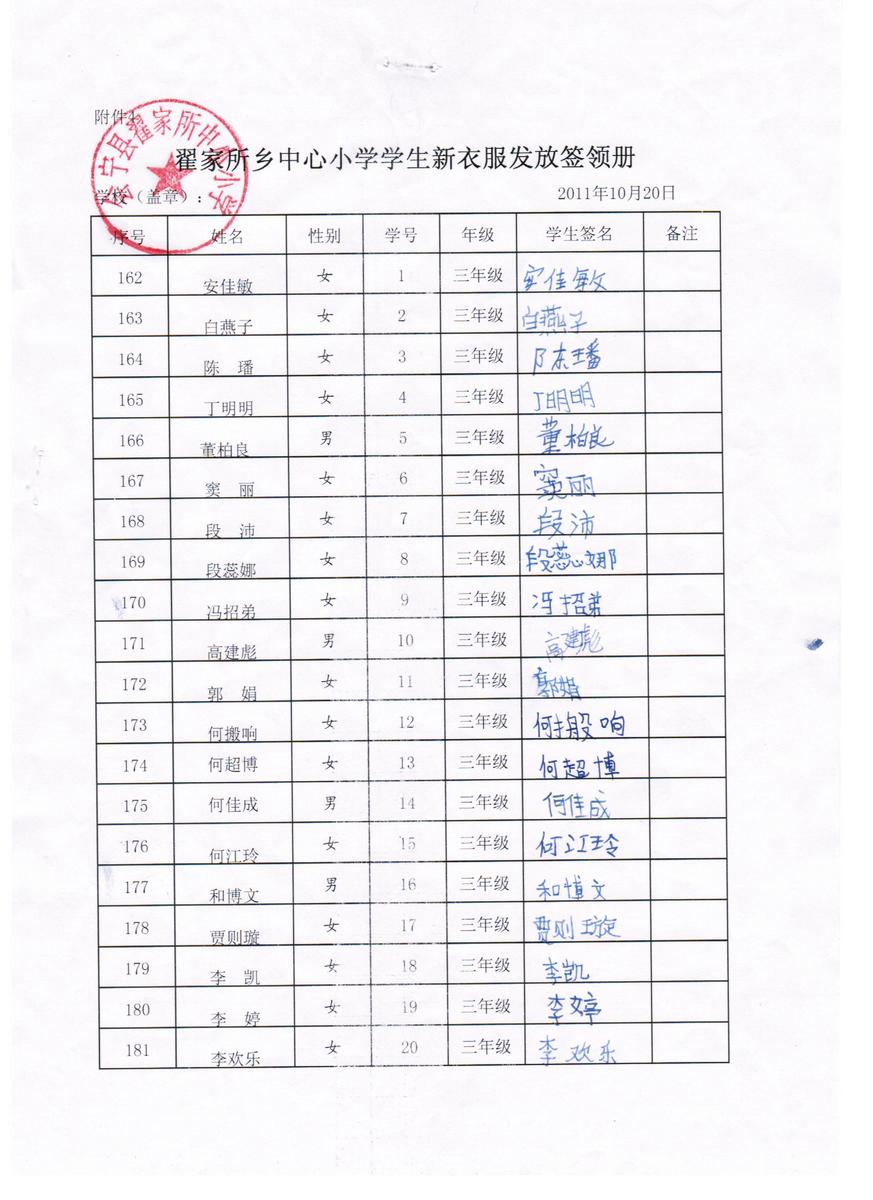 附件4
会宁县翟家所中心小学
翟家所乡中心小学学生新衣服发放签领册
学校（盖章）： 2011年10月20日
序号 姓名 性别 学号 年级 学生签名 备注
162 安佳敏 女 1 三年级 安佳敏
163 白燕子 女 2 三年级 白燕子
164 陈 璠 女 3 三年级 陈璠
165 丁明明 女 4 三年级 丁明明
166 董柏良 男 5 三年级 董柏良
167 窦 丽 女 6 三年级 窦丽
168 段 沛 女 7 三年级 段沛
169 段蕊娜 女 8 三年级 段蕊娜
170 冯招弟 女 9 三年级 冯招弟
171 高建彪 男 10 三年级 高建彪
172 郭 娟 女 11 三年级 郭娟
173 何搬响 女 12 三年级 何搬响
174 何超博 女 13 三年级 何超博
175 何佳成 男 14 三年级 何佳成
176 何江玲 女 15 三年级 何江玲
177 和博文 男 16 三年级 和博文
178 贾则璇 女 17 三年级 贾则璇
179 李 凯 女 18 三年级 李凯
180 李 婷 女 19 三年级 李婷
181 李欢乐 女 20 三年级 李欢乐